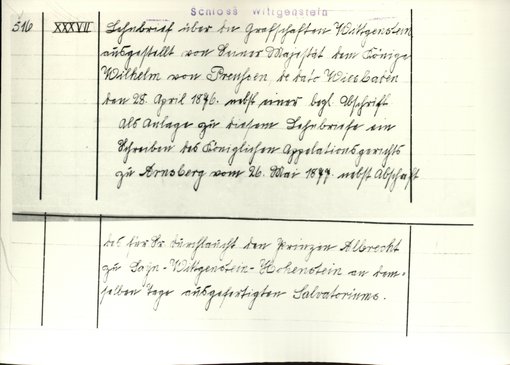 Schloss Wittgenstein
516 XXXVII Lehnbrief über die Grafschaften Wittgenstein
ausgestellt von Seiner Majestät dem Könige
Wilhelm von Preußen, de dato Wiesbaden
den 28. April 1876. nebst einer begl. Abschrift
Als Anlage zu diesem Lehnbriefe ein
Schreiben des Königlichen Appelationsgerichts
zu Arnsberg vom 26. Mai 1877. nebst Abschrift
des der Sr. Durchlaucht dem Prinzen Albrecht
zu Sayn-Wittgenstein-Hohenstein an dem-
selben Tage ausgefertigten Salvatoriums.